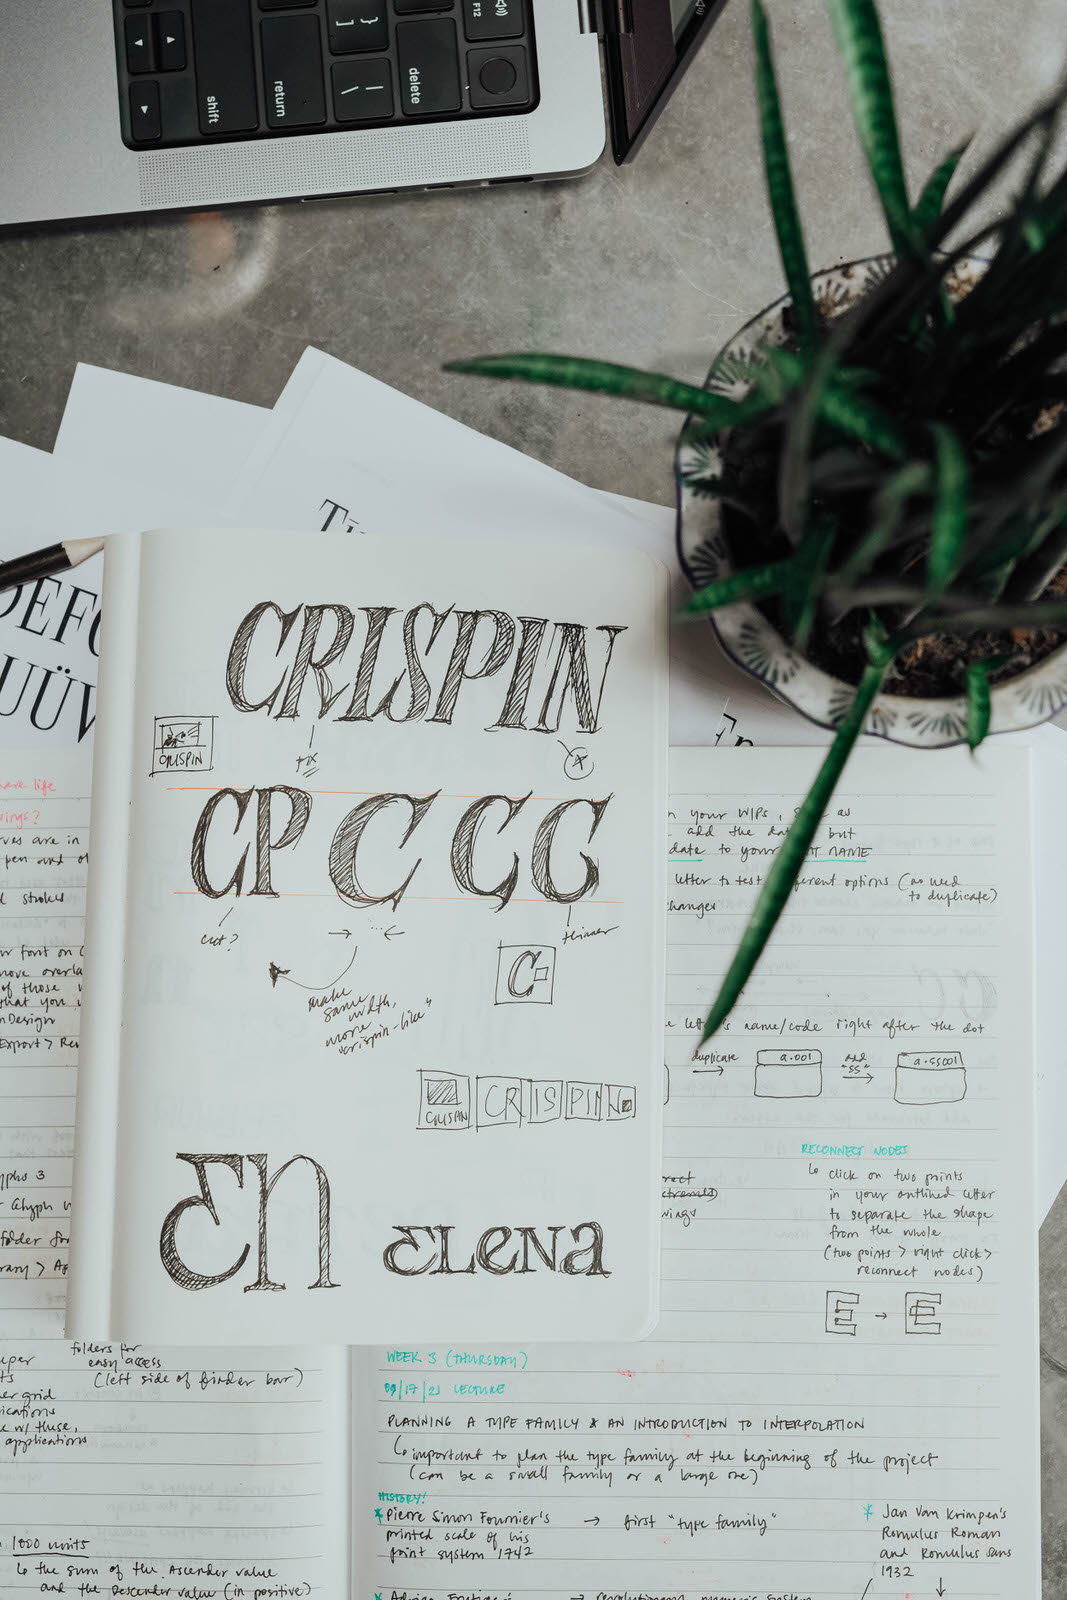 F12
{ [
} ]
| \
delete
return
shift
DEFG
UÜV
CRISPIN
fix
CRISPIN
CP C C C
cut?
thinner
make
same
width,
more
"crispin-like"
C
CRISPIN
CRISPIN
En
ELENA
your WIPs, as
add the but
date to your NAME
letter to test options (no need
to duplicate)
name/code right after the dot
duplicate
a.001
add
"ss"
a.ss001
RECONNECT NODES
click on two points
in your outlined letter
to separate the shape
from the whole
(two points > right click >
reconnect nodes)
E → E
life
are in
pen and
strokes
font on
of those
that you
Export >
Glyph
folder for
folders for
easy access
(left side of finder bar)
grid
w/ these,
applications
1000 units
the sum of the Ascender value
and the Descender value (in positive)
WEEK 3 (THURSDAY)
09/17/21 LECTURE
PLANNING A TYPE FAMILY & AN INTRODUCTION TO INTERPOLATION
important to plan the type family at the beginning of the project
(can be a small family or a large one)
HISTORY!
* Pierre Simon Fournier's → first "type family"
printed scale of his
point system 1742
* Jan Van Krimpen's
Romulus Roman
and Romulus Sans
1932